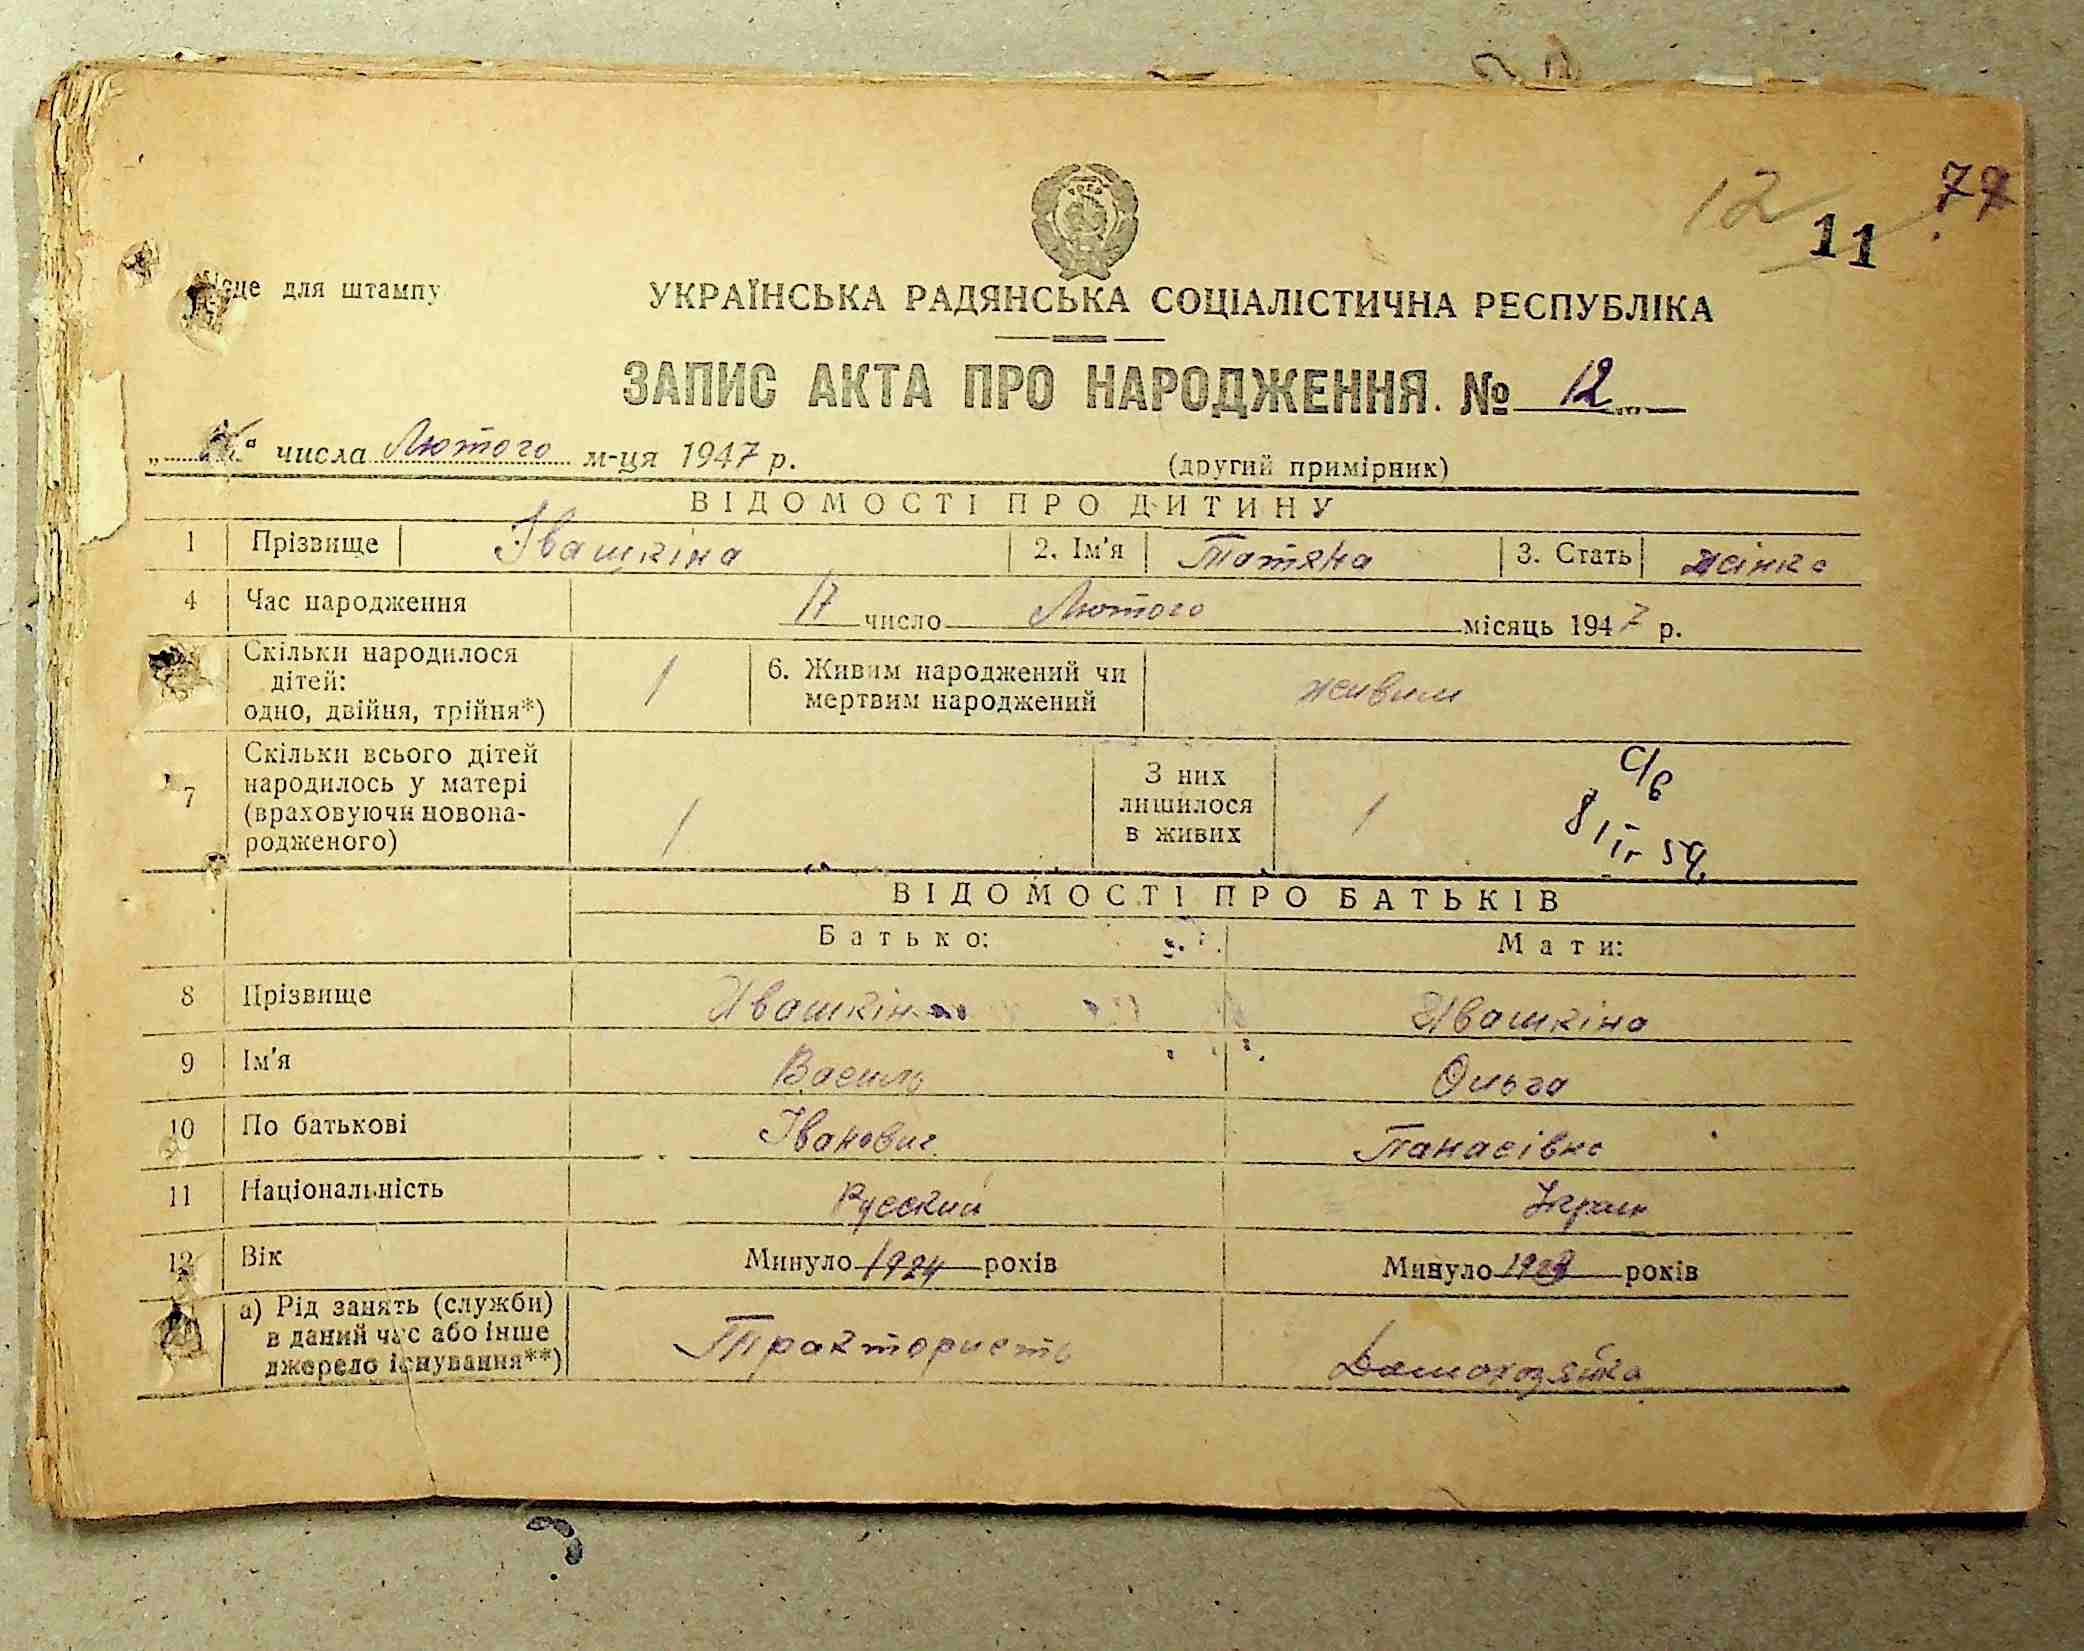 12 11 77
Місце для штампу
УКРАЇНСЬКА РАДЯНСЬКА СОЦІАЛІСТИЧНА РЕСПУБЛІКА
ЗАПИС АКТА ПРО НАРОДЖЕННЯ. № 12
" " числа Лютого м-ця 1947 р. (другий примірник)
ВІДОМОСТІ ПРО ДИТИНУ
1 Прізвище Івашкіна 2. Ім'я Татяна 3. Стать жінка
4 Час народження 17 число Лютого місяць 1947 р.
Скільки народилося дітей: одно, двійня, трійня*) 1 6. Живим народжений чи мертвим народжений живим
7 Скільки всього дітей народилось у матері (враховуючи новонародженого) 1 З них лишилося в живих 1
С/в
8/IV 59.
ВІДОМОСТІ ПРО БАТЬКІВ
Батько: Мати:
8 Прізвище Ивашкін Ивашкіна
9 Ім'я Василь Ольга
10 По батькові Іванович Панасівна
11 Національність Русский Украін
12 Вік Минуло 1924 років Минуло років
а) Рід занять (служби) в даний час або інше джерело існування**) Трактористь Домохозяйка